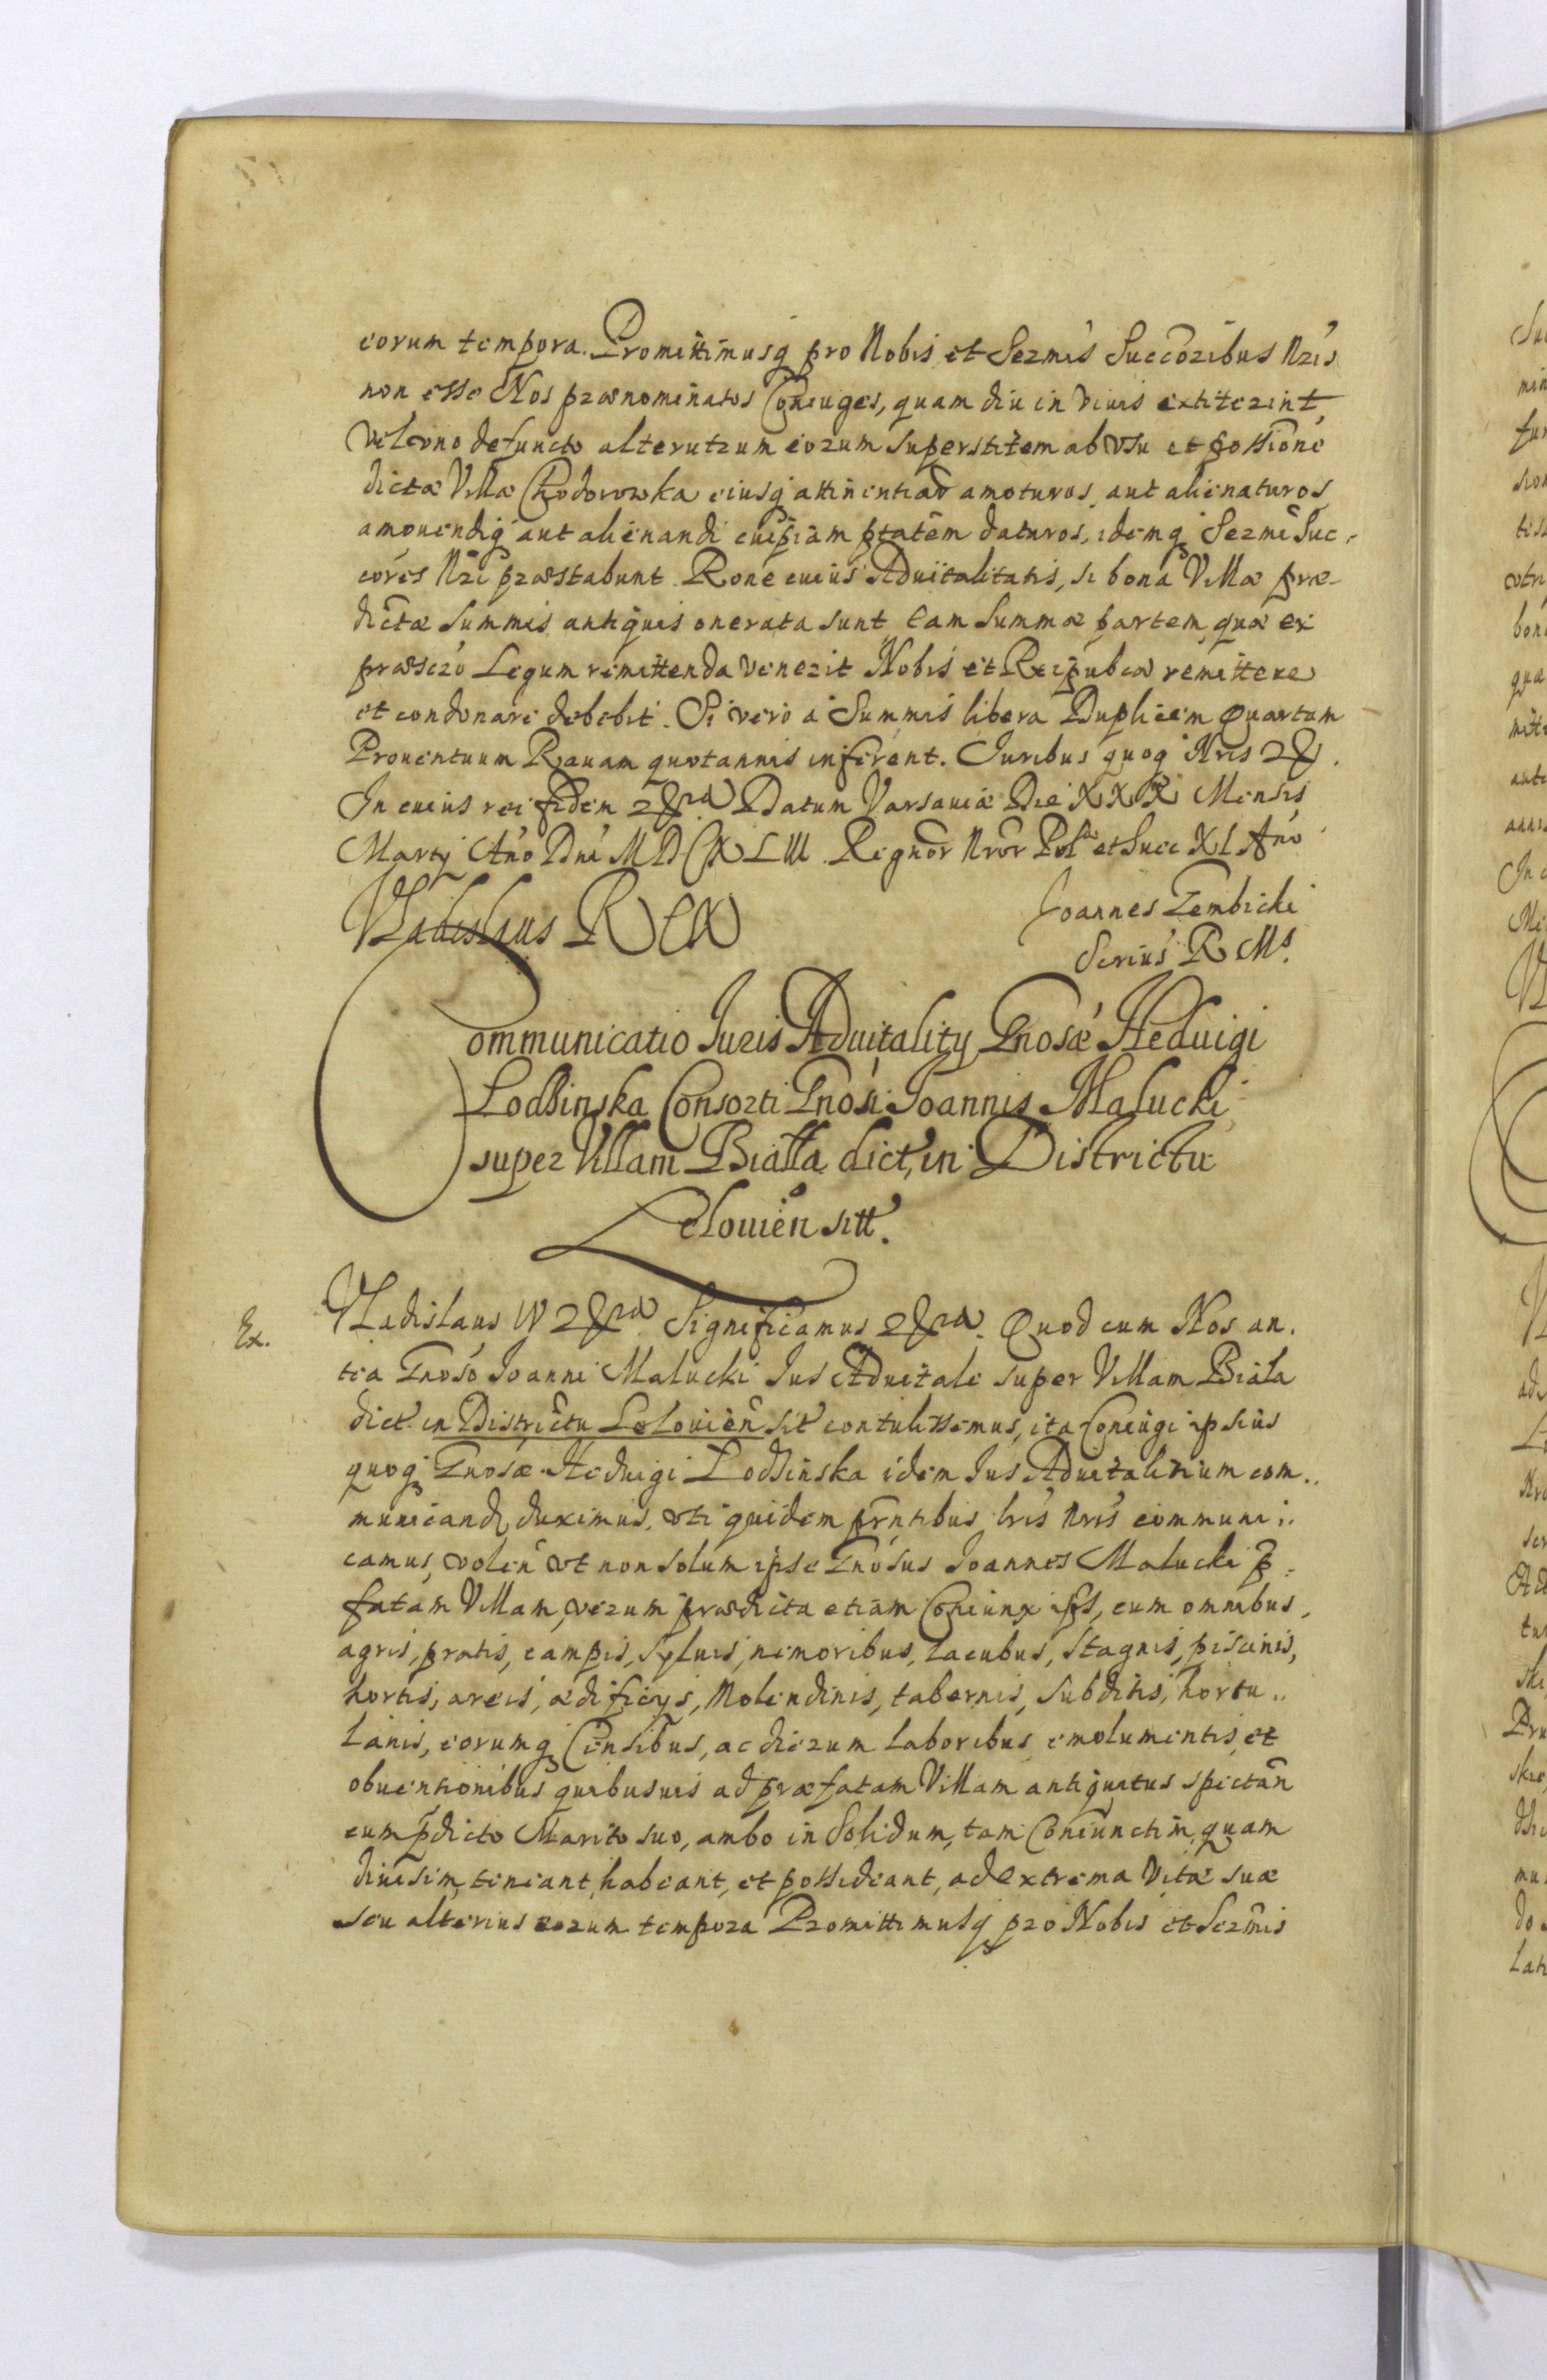 eorum tempora. Promittimusq pro Nobis et Sermis Succoribus Nris
non esse Nos prænominatos Coniuges, quam diu in viuis extiterint,
vel vno defuncto alterutrum eorum superstitem ab vsu et possione
dictæ Villæ Chodorowka eiusq attinentiar amoturos, aut alienaturos
amouendiq aut alienandi cuipiam ptatem daturos, idemq Sermi Suc-
cores Nri præstabunt. Rone cuius Aduitalitatis, si bona Villæ præ-
dictæ summis antiquis onerata sunt eam summæ partem, quæ ex
præscro Legum remittenda venerit Nobis et Reipubcæ remittere
et condonare debebit. Si vero a Summis libera Duplicem Quartam
Prouentuum Rauam quotannis inferent. Iuribus quoq Nris &.
In cuius rei fidem & Datum Varsauiæ Die XXX Mensis
Martÿ Ano Dni MDCXLIII Regnor Nror Pol et Suec XI Ano
Vladislaus Rex
Joannes Gembicki
Scrius R Ms.
Communicatio Iuris Aduitalitÿ Gnosæ Heduigi
Lodzinska Consorti Gnosi Joannis Malucki
super Villam Biała dict, in Districtu
Lelouien sitt.
Ex.
Vladislaus IV &ra Significamus &ra. Quod cum Nos an.
tea Gnoso Joanni Malucki Ius Aduitale super Villam Biała
dict in Districtu Lelouien sit contulissemus, ita Coniugi ipsius
quoq Gnosæ Heduigi Lodzinska idem Ius Aduitalitium com..
municand duximus, vti quidem prntibus lris nris communi..
camus, volen vt non solum ipse Gnosus Joannes Malucki p.
fatam Villam, verum prædicta etiam Coniunx ips, cum omnibus,
agris, pratis, campis, syluis, nemoribus, lacubus, stagnis, piscinis,
hortis, areis, ædificÿs, Molendinis, tabernis, subditis, hortu..
lanis, eorumq Censibus, ac dierum laboribus emolumentis, et
obuentionibus quibusuis ad præfatam Villam antiquitus spectan
cum pdicto Marito suo, ambo in Solidum, tam Coniunctim, quam
diuisim, teneant, habeant, et possideant, ad extrema Vitæ suæ
seu alterius eorum tempora Promittimusq pro Nobis et Sermis